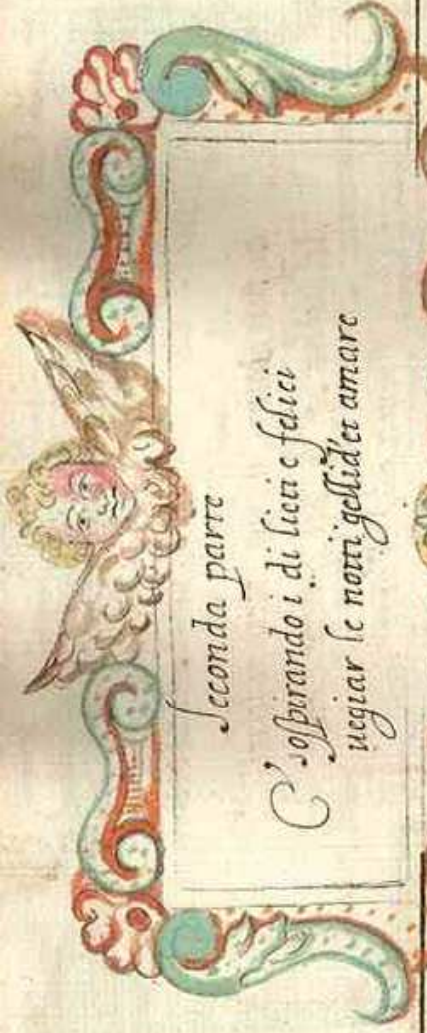 Seconda parte
E' sospirando i di lieti e felici
uegiar le notti gellid' et amare